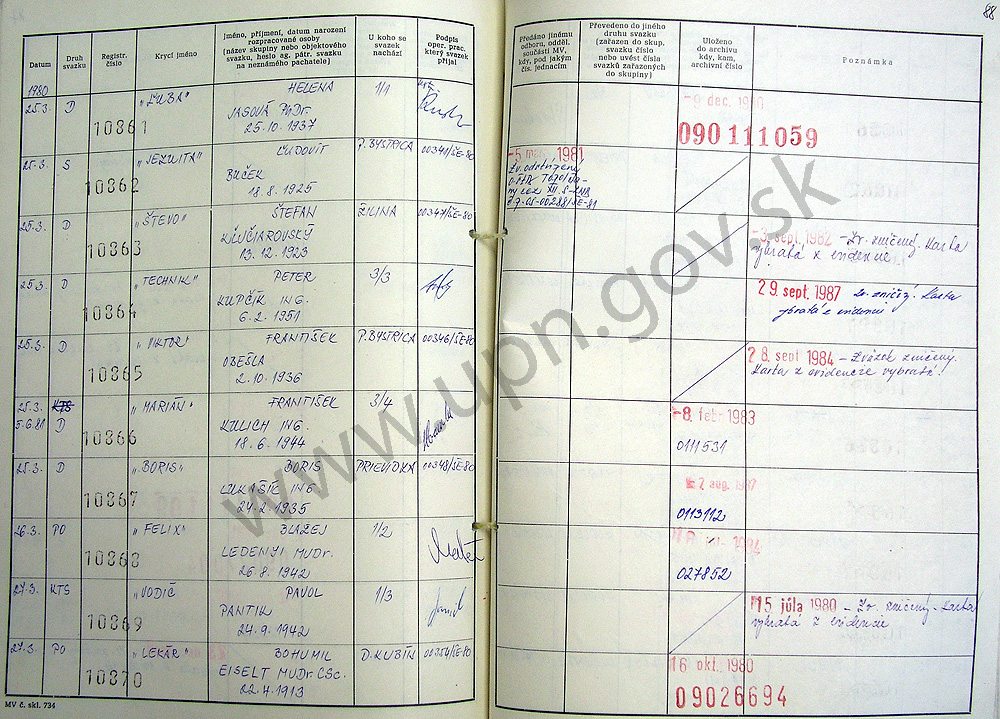 88
Datum
Druh svazku
Registr. číslo
Krycí jméno
Jméno, příjmení, datum narození
rozpracované osoby
(název skupiny nebo objektového
svazku, heslo ag. pátr. svazku
na neznámého pachatele)
U koho se
svazek
nachází
Podpis
oper. prac.
který svazek
přijal
Předáno jinému
odboru, odděl.
součásti MV,
kdy, pod jakým
čís. jednacím
Převedeno do jiného
druhu svazku
(zařazen do skup.
svazku číslo
nebo uvést čísla
svazků zařazených
do skupiny)
Uloženo
do archivu
kdy, kam,
archivní číslo
Poznámka
1980
25.3. D 10861 „ĽUBA" HELENA 1/1
JASOVÁ PhDr.
25.10.1937
-9 dec. 1980
090 111 059
25.3. S 10862 „JEZUITA" ĽUDOVÍT P. BYSTRICA 00341/ŠE-80
BÚČEK
18.8.1925
1981
25.3. D 10863 „ŠTEVO" ŠTEFAN ŽILINA 00347/ŠE-80
KĽUČIAROVSKÝ
13.12.1923
-3. sept. 1982 - Zv. zničený. Karta
vybratá z evidencie
25.3. D 10864 „TECHNIK" PETER 3/3
KUPČÍK ING.
6.2.1951
29. sept. 1987 Zv. zničený. Karta
vybratá z evidencie
25.3. D 10865 „VIKTOR" FRANTIŠEK P. BYSTRICA 00346/ŠE-80
OBEŠLA
2.10.1936
28. sept 1984 - Zväzok zničený.
Karta z evidencie vybratá.
25.3. KTS 10866 „MARIÁN" FRANTIŠEK 3/4
5.6.81 D KULICH ING.
18.6.1944
-8. feb. 1983
0111531
25.3. D 10867 „BORIS" BORIS PRIEVIDZA 00348/ŠE-80
LUKAŠÍK ING.
24.2.1935
2 aug. 1987
0113112
26.3. PO 10868 „FELIX" BLAŽEJ 1/2
LEDENYI MUDr.
26.8.1942
1984
027852
27.3. KTS 10869 „VODIČ" PAVOL 1/3
PANTIK
24.9.1942
15 júla 1980 - Zv. zničený. Karta
vybratá z evidencie
27.3. PO 10870 „LEKÁR" BOHUMIL D. KUBÍN 00354/ŠE-80
EISELT MUDr. CSc.
22.4.1913
16 okt. 1980
09026694
MV č. skl. 734
www.upn.gov.sk